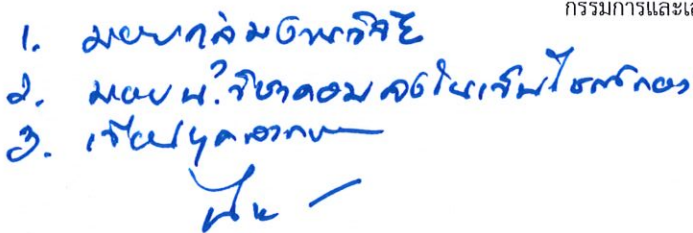 กรรมการและเล
1. มอบกลุ่มงานวิจัย
2. มอบ น.วิชาคอม ลงในเว็บไซต์กอง
3. เวียนบุคลากร